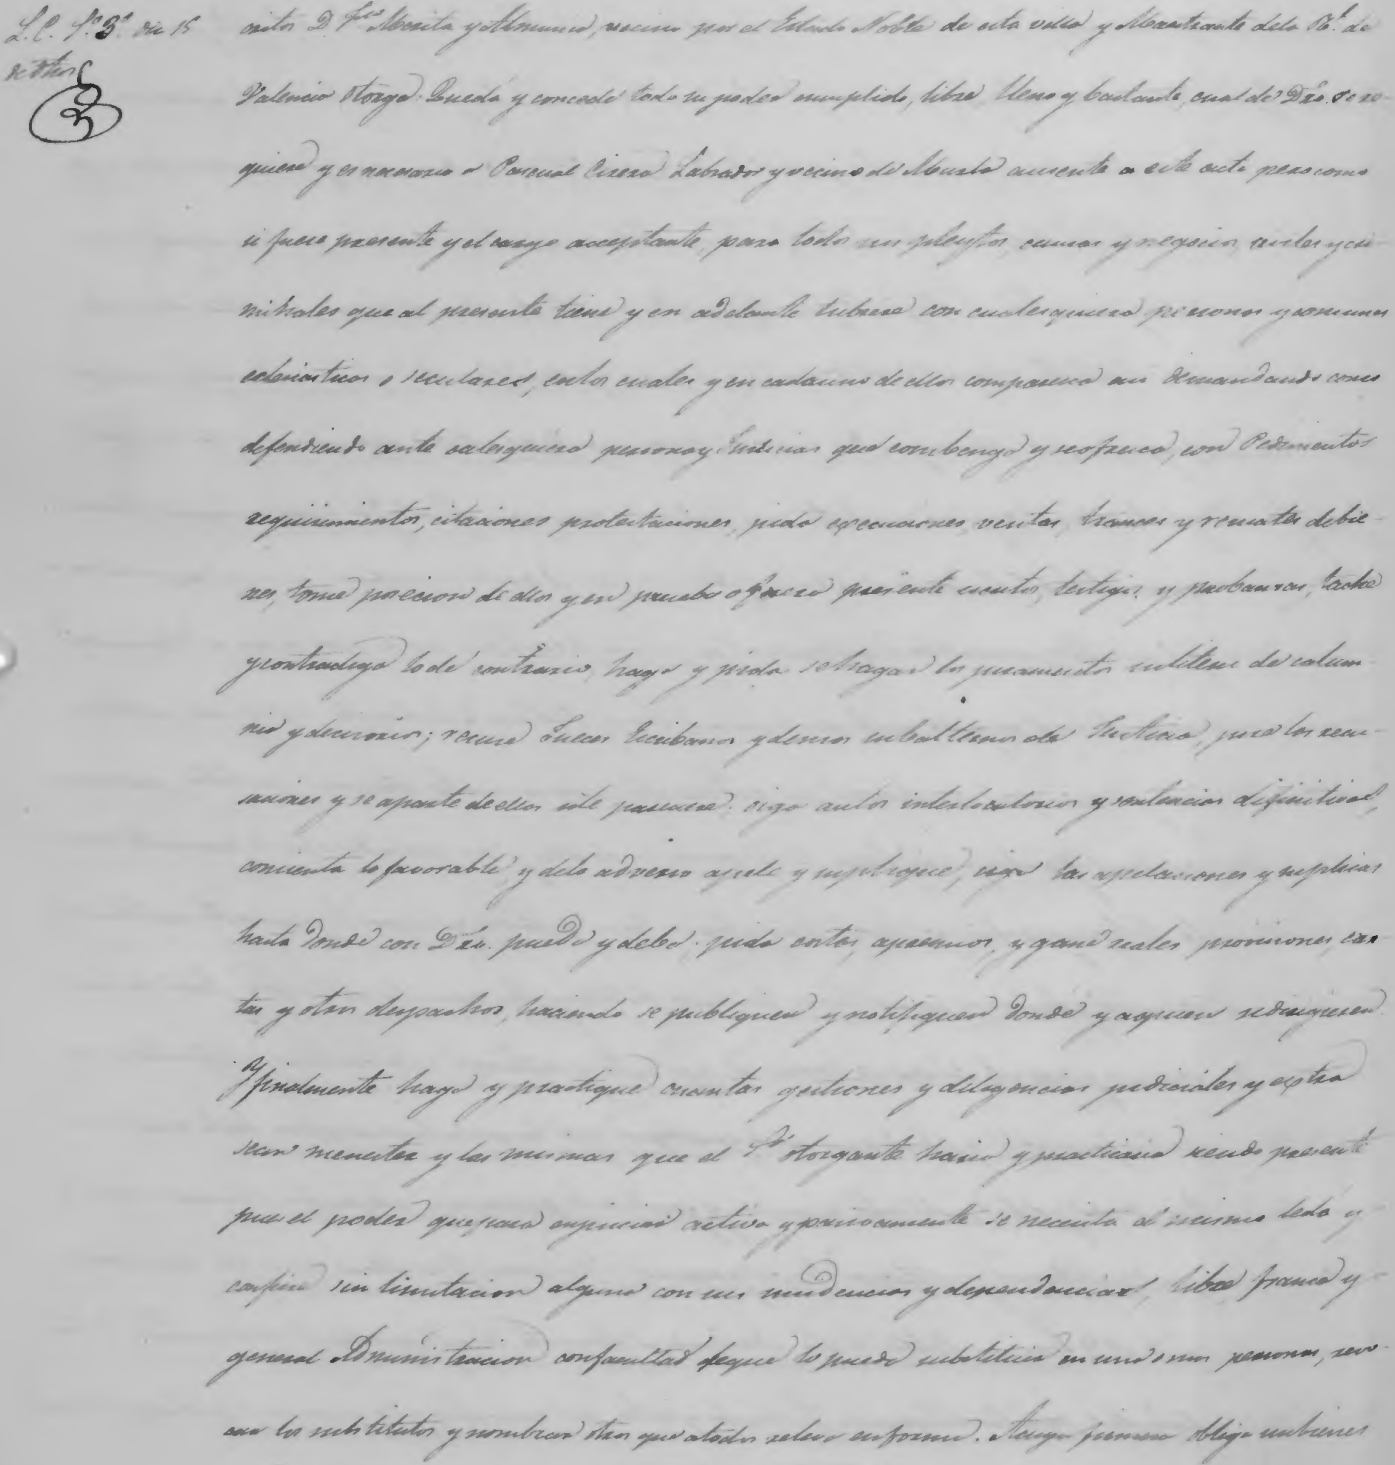 L.C. Sº 3º dia 15
de otor
critos D. Frco Merita y Almunia, vecino por el Estado Noble de esta villa y Maestrante dela Rl. de
Valencia otorga: Queda y concede todo su poder cumplido, libre lleno y bastante, cual de Dro. se re-
quiere y es necesario a Pascual Civera Labrador y vecino de Murla ausente a este acto pero como
si fuese presente y el cargo acceptante, para todos sus pleytos, causas y negocios, civiles y cri-
minales que al presente tiene y en adelante tubiere con cualesquiera personas y comunes
eclesiasticos o seculares, en los cuales y en cadauno de ellos comparesca asi demandando como
defendiendo ante calesquiera persona y Justicias que combenga y se ofresca, con Pedimentos
requirimientos, citaciones protestaciones, pida execuciones, ventas, trances y remates de bie-
nes, tome posecion de ellos y en prueba o fuera presente escritos, testigos y probanzas, tache
y contradiga lo de contrario, haga y pida se hagan los juramentos in litem de calum-
nia y decisorio; recuse Jueces Escribanos y demas subalternos de Justicia, jure las recu-
saciones y se aparte de ellas si le pareciere: oiga autos interlocutorios y sentencias difinitivas,
concienta lo favorable y delo adverso apele y suplique, siga las apelaciones y suplicas
hasta donde con Dro. pueda y deba: pida costas, apremios, y gane reales provisiones, car-
tas y otros despachos, haciendo se publiquen y notifiquen donde y aquien se dirigieren.
Y finalmente haga y practique cuantas gestiones y diligencias judiciales y extra
sean menester y las mismas que el Sr. otorgante haria y practicaria siendo presente
pues el poder que para enjuiciar activa y pasivamente se necesita al mismo leda y
confiere sin limitacion alguna con sus incidencias y dependencias, libre franca y
general Administracion con facultad deque lo pueda substituir en una o mas personas, revo-
car los substitutos y nombrar otros que atodos releva en forma. Asuya firmeza obliga sus bienes